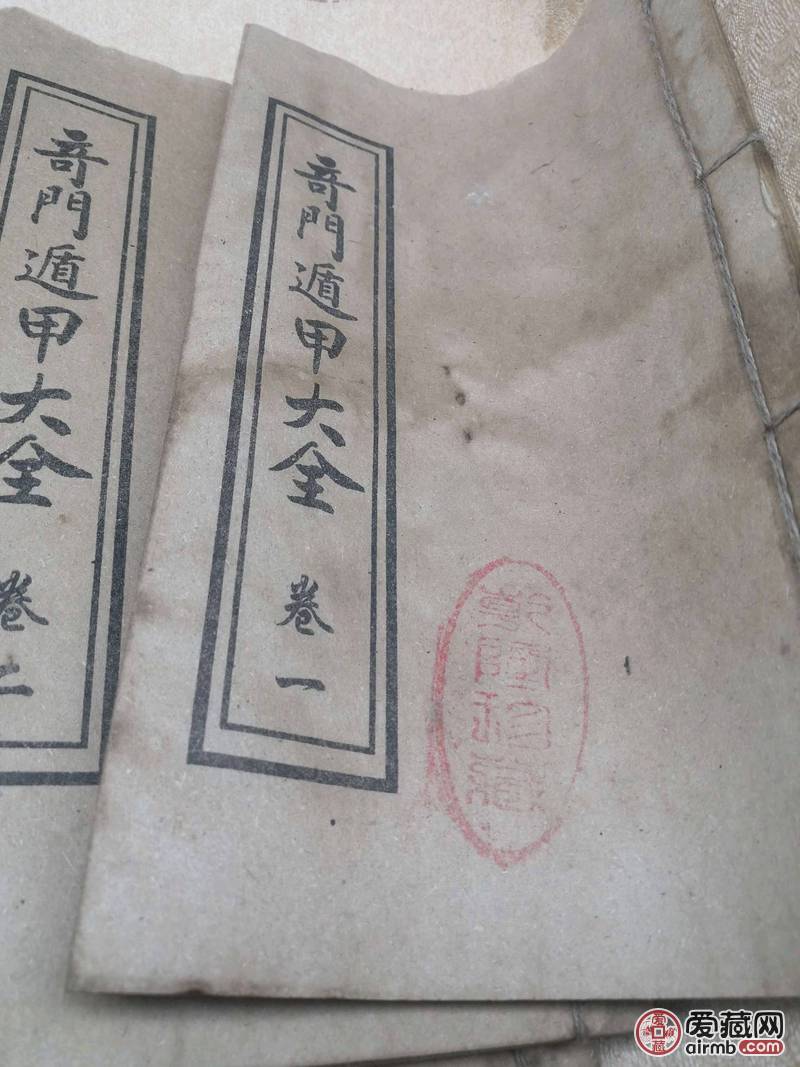 奇門遁甲大全 卷一
奇門遁甲大全 卷二
爱藏网
airmb.com